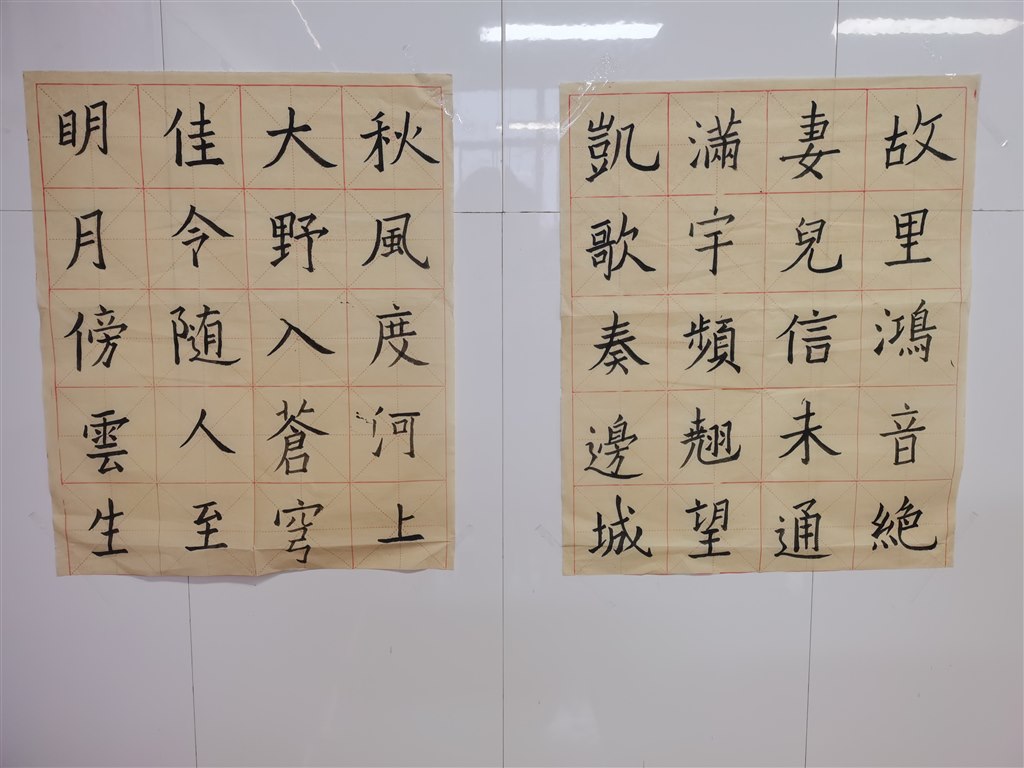 故里鴻音絕
妻兒信未通
滿宇頻翹望
凱歌奏邊城
秋風度河上
大野入蒼穹
佳令随人至
明月傍雲生